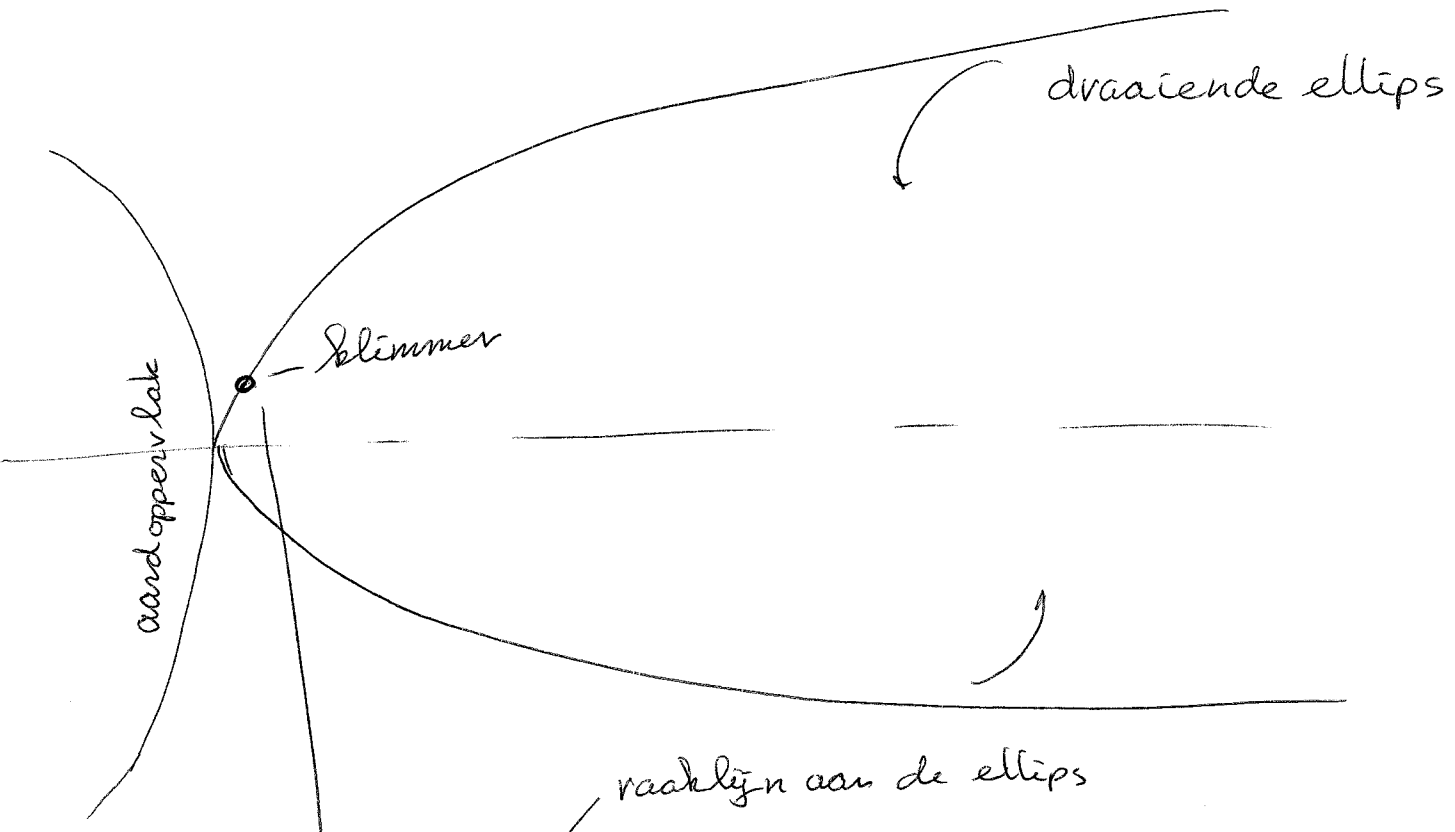 draaiende ellips
klimmer
aardoppervlak
raaklijn aan de ellips